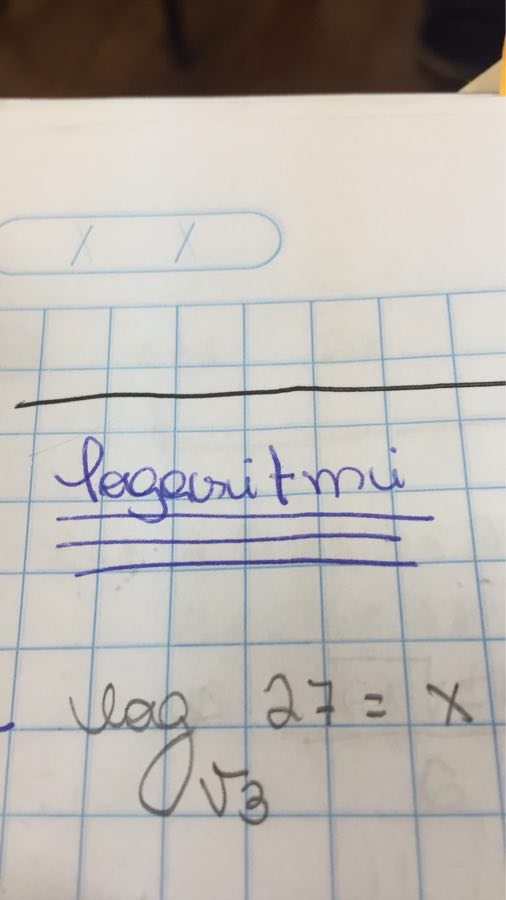 logaritmi
log 27 = x
√3